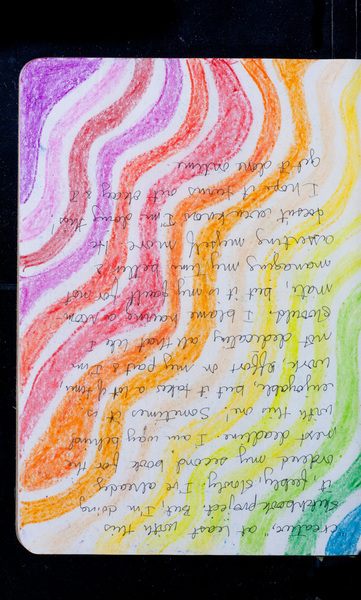 creative," at least with this
sketchbook project. But, I'm doing
it, feebly, slowly. I've already
ordered my second book for the
next deadline. I am way behind
with this one! Sometimes it is
enjoyable, but it takes a lot of time,
work, effort on my part & I'm
not dedicating all that like I
should. I blame having a room-
mate, but it is my fault for not
managing my time better &
asserting myself more. He
doesn't even know I'm doing this!
I hope it turns out okay & I
get it done ontime.